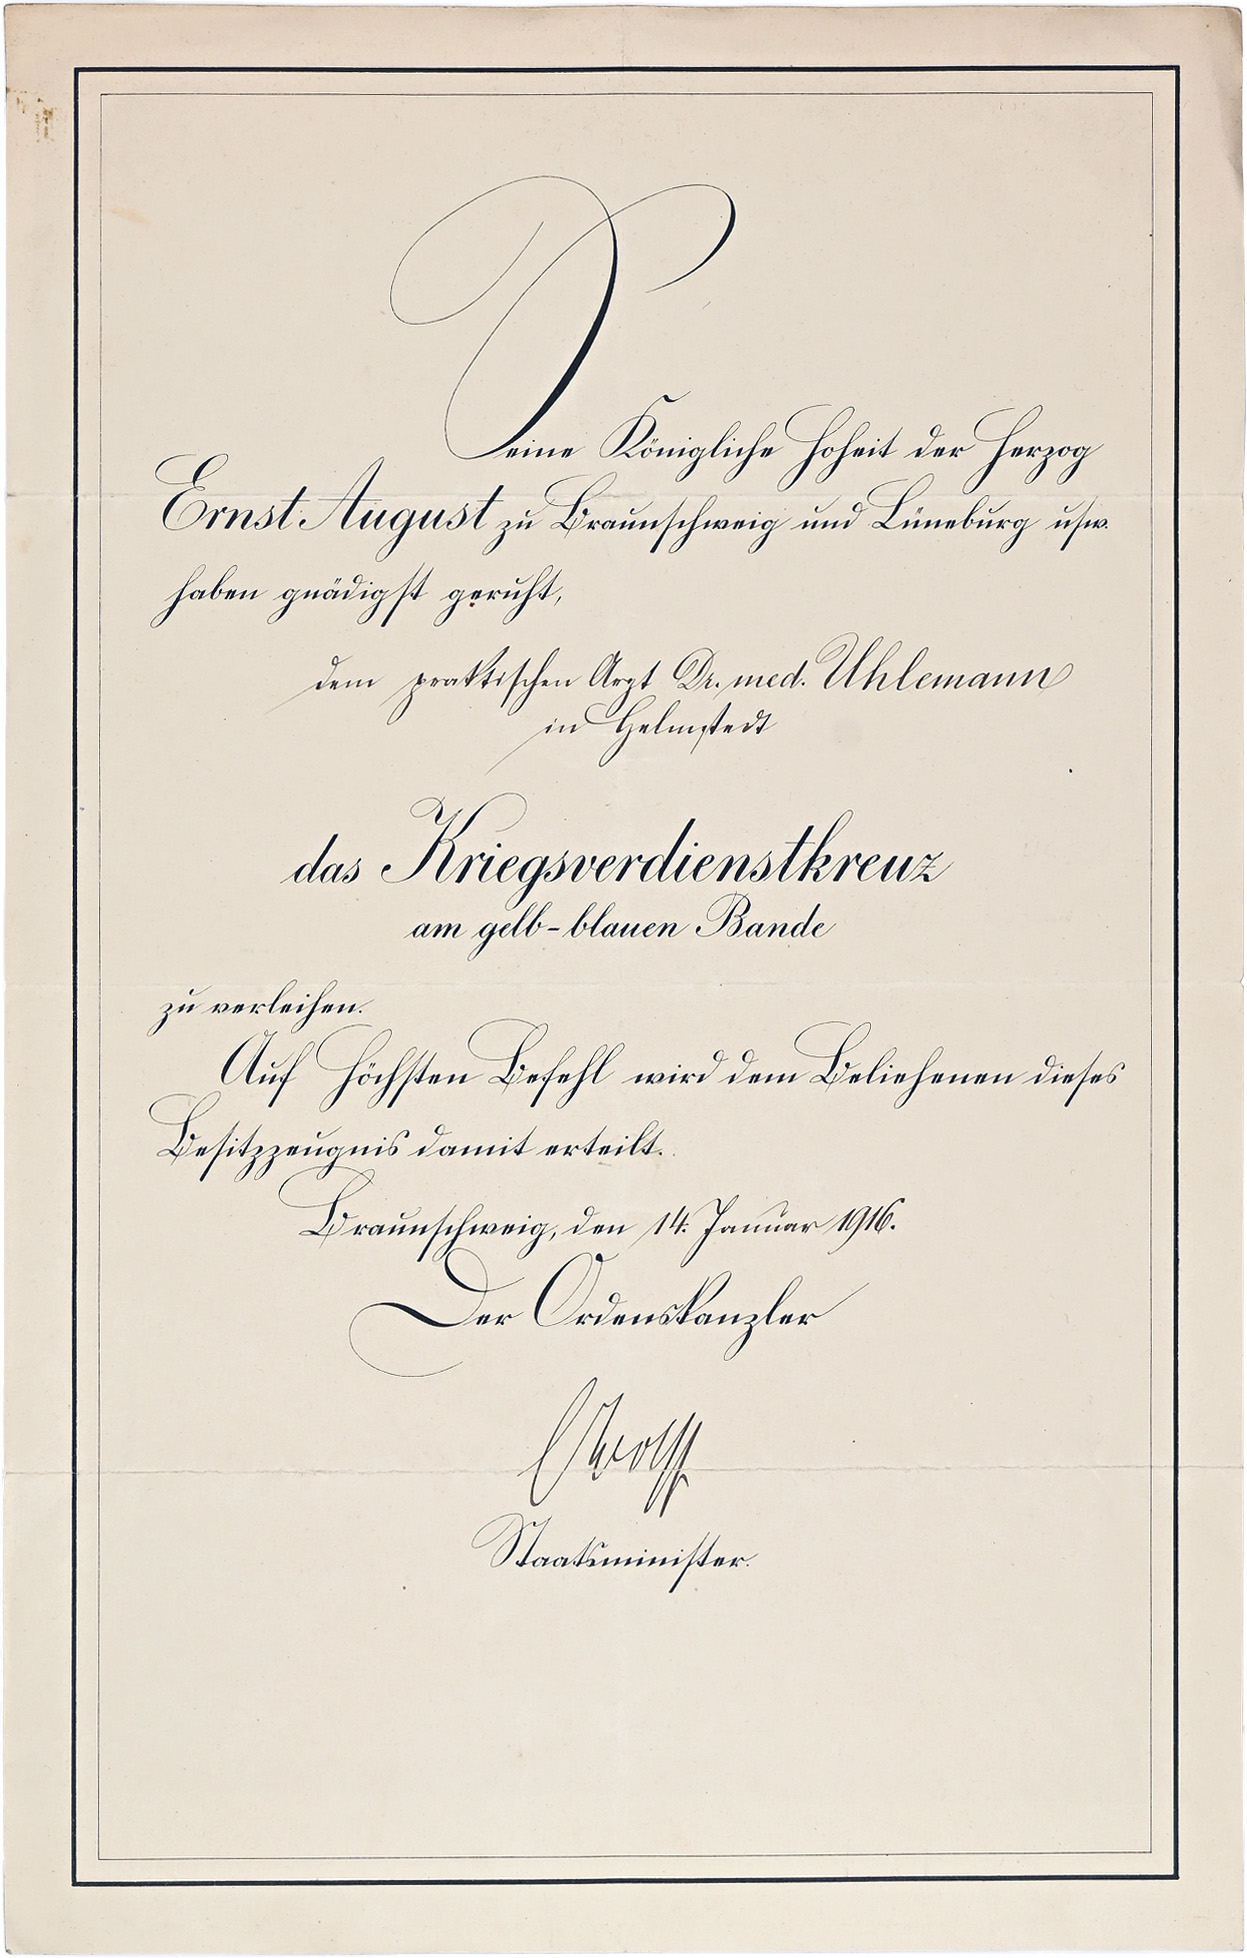 Seine Königliche Hoheit der Herzog
Ernst August zu Braunschweig und Lüneburg usw.
haben gnädigst geruht,
dem praktischen Arzt Dr. med. Uhlemann
in Helmstedt
das Kriegsverdienstkreuz
am gelb-blauen Bande
zu verleihen.
Auf Höchsten Befehl wird dem Beliehenen dieses
Besitzzeugnis damit erteilt.
Braunschweig, den 14. Januar 1916.
Der Ordenskanzler
CWolff
Staatsminister.